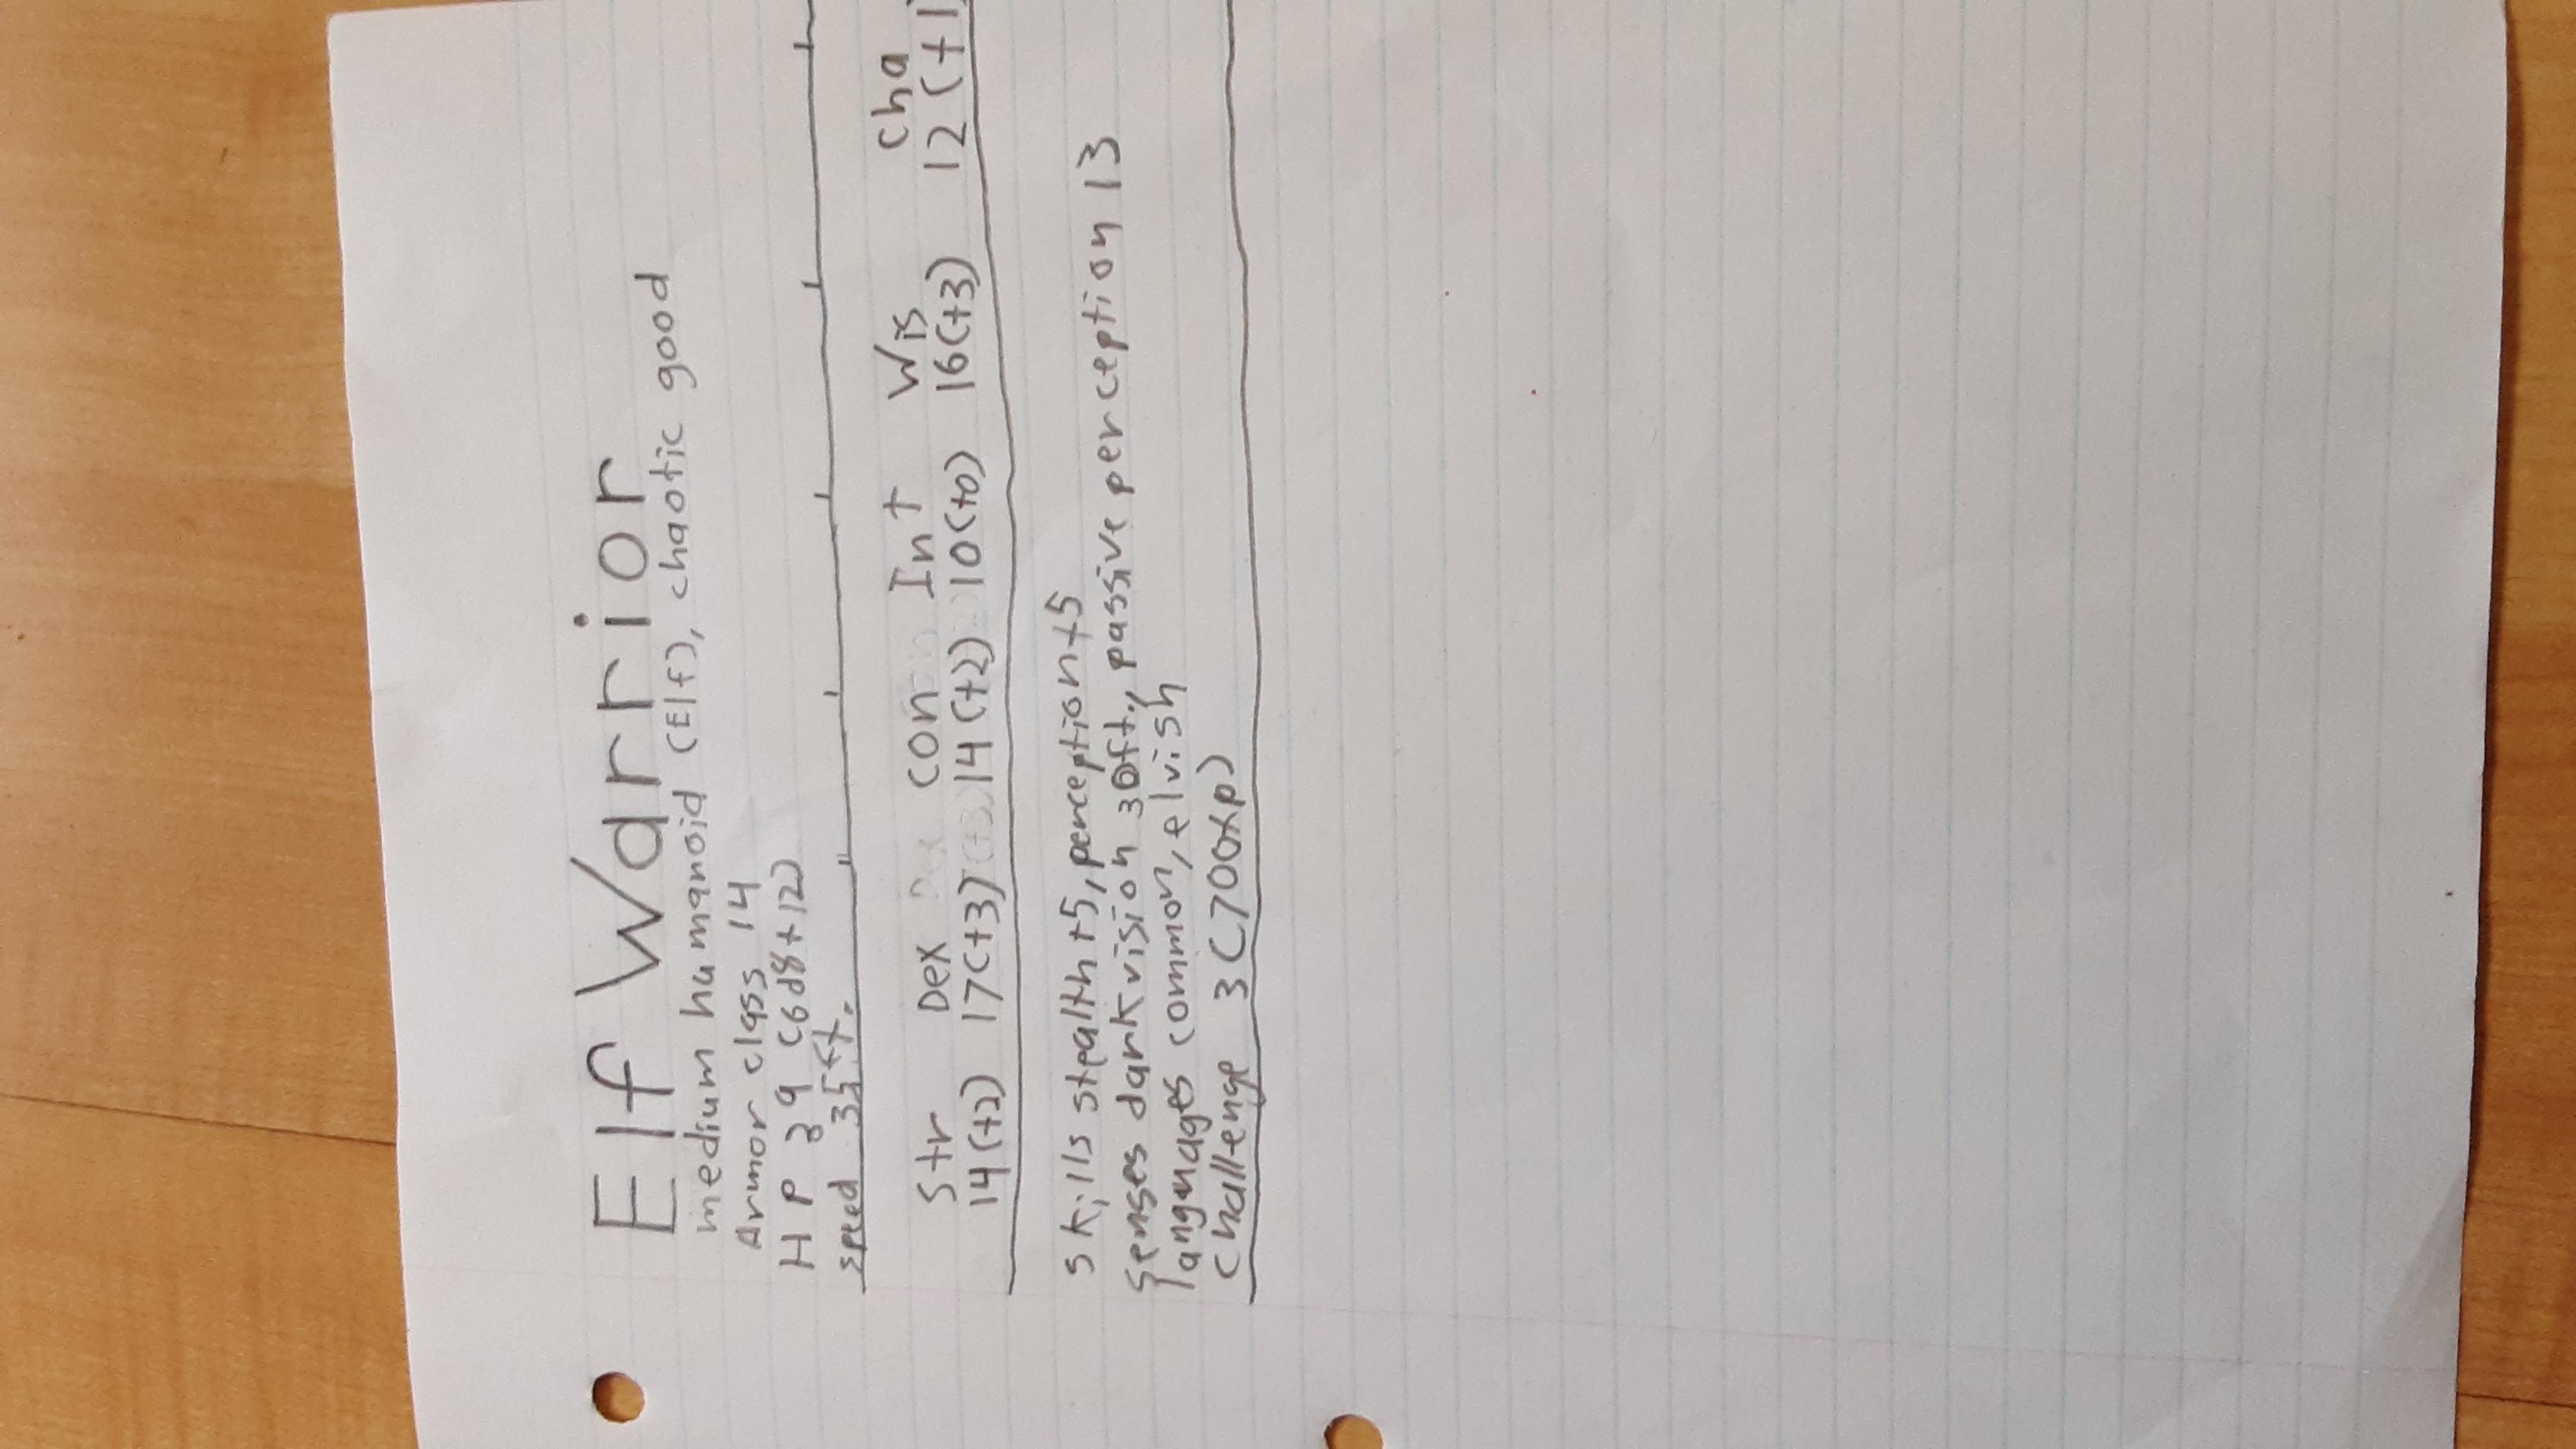 Elf Warrior
medium humanoid (Elf), chaotic good
Armor class 14
HP 39 (6d8+12)
speed 35ft.
Str Dex Con Int Wis Cha
14(+2) 17(+3) 14(+2) 10(+0) 16(+3) 12(+1)
skills stealth+5, perception+5
Senses darkvision 30ft., passive perception 13
languages common, elvish
challenge 3(700xp)